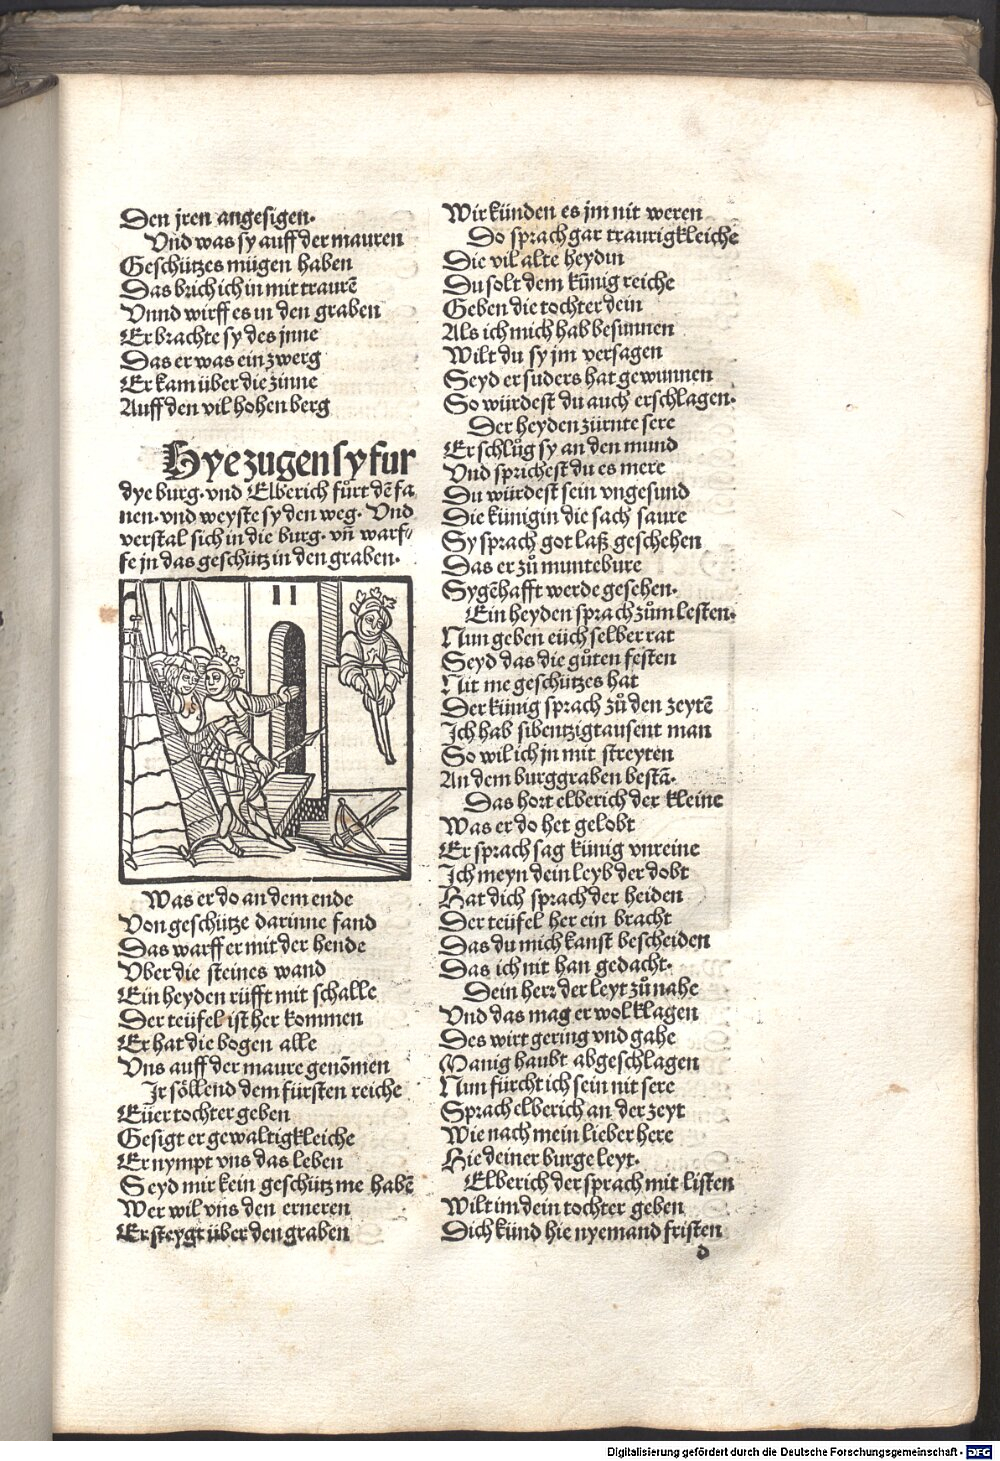 Den jren angesigen.
Vnd was sy auff der mauren
Geschützes mügen haben
Das brich ich in mit traurẽ
Vnnd wirff es in den graben
Er brachte sy des jnne
Das er was ein zwerg
Er kam über die zinne
Auff den vil hohen berg
Hye zugen sy fur
dye burg. vnd Elberich fůrt dẽ fa
nen. vnd weyste sy den weg. Vnd
verstal sich in die burg. vñ warf⸗
fe jn das geschütz in den graben.
Was er do an dem ende
Von geschütze darinne fand
Das warff er mit der hende
Vber die steines wand
Ein heyden rüfft mit schalle
Der teüfel ist her kommen
Er hat die bogen alle
Vns auff der maure genõmen
Ir söllend dem fürsten reiche
Eüer tochter geben
Gesigt er gewaltigkleiche
Er nympt vns das leben
Seyd mir kein geschütz me habẽ
Wer wil vns den erneren
Er steygt über den graben
Wir künden es jm nit weren
Do sprach gar traurigkleiche
Die vil alte heydin
Du solt dem künig reiche
Geben die tochter dein
Als ich mich hab besunnen
Wilt du sy jm versagen
Seyd er suders hat gewunnen
So würdest du auch erschlagen.
Der heyden zürnte sere
Er schlůg sy an den mund
Vnd sprichest du es mere
Du würdest sein vngesund
Die künigin die sach saure
Sy sprach got laß geschehen
Das er zů muntebure
Sygẽhafft werde gesehen.
Ein heyden sprach zům lesten.
Nun geben eüch selber rat
Seyd das die gůten festen
Nit me geschützes hat
Der künig sprach zů den zeytẽ
Ich hab sibentzigtausent man
So wil ich jn mit streyten
An dem burggraben bestã.
Das hort elberich der kleine
Was er do het gelobt
Er sprach sag künig vnreine
Ich meyn dein leyb der dobt
Hat dich sprach der heiden
Der teüfel her ein bracht
Das du mich kanst bescheiden
Das ich nit han gedacht.
Dein herz der leyt zů nahe
Vnd das mag er wol klagen
Des wirt gering vnd gahe
Manig haubt abgeschlagen
Nun fürcht ich sein nit sere
Sprach elberich an der zeyt
Wie nach mein lieber here
Hie deiner burge leyt.
Elberich der sprach mit listen
Wilt im dein tochter geben
Dich künd hie nyemand fristen
d
Digitalisierung gefördert durch die Deutsche Forschungsgemeinschaft - DFG